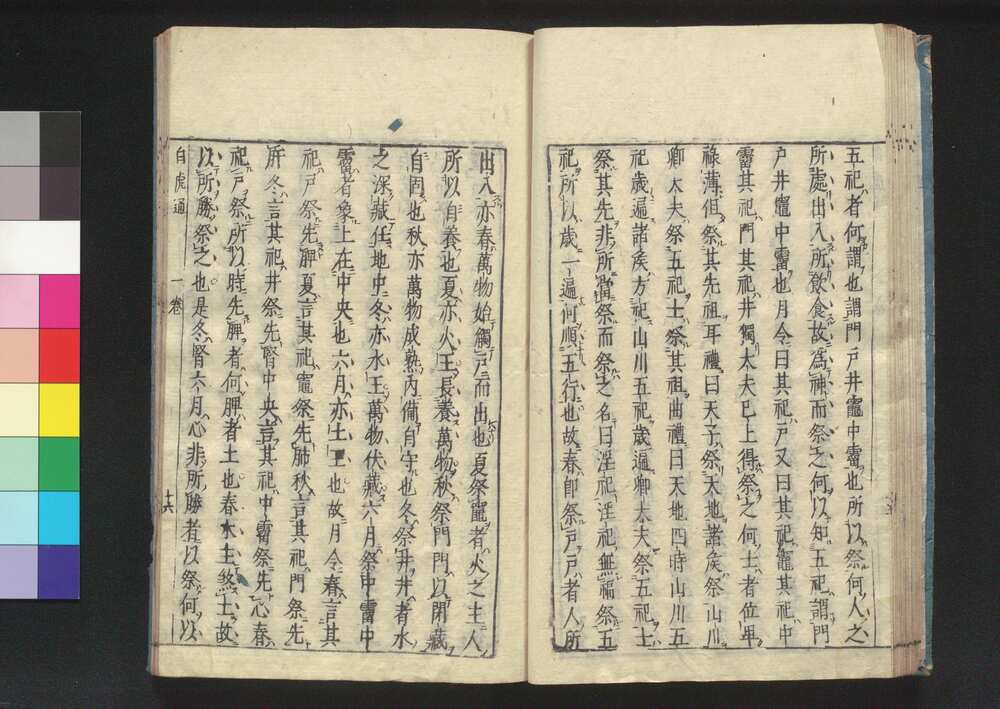 五祀者何謂也謂門戸井竈中霤也所以祭何人之
所處出入所飲食故爲神而祭之何以知五祀謂門
戸井竈中霤也月令曰其祀戸又曰其祀竈其祀中
霤其祀門其祀井獨大夫已上得祭之何士者位卑
祿薄但祭其先祖耳禮曰天子祭天地諸侯祭山川
卿大夫祭五祀士祭其祖曲禮曰天地四時山川五
祀歳遍諸侯方祀山川五祀歳遍卿大夫祭五祀士
祭其先非所當祭而祭之名曰淫祀淫祀無福祭五
祀所以歳一遍何順五行也故春即祭戸戸者人所
出入亦春萬物始觸戸而出也夏祭竈者火之主人
所以自養也夏亦火王長養萬物秋祭門門以閉藏
自固也秋亦萬物成熟内備自守也冬祭井井者水
之深藏任地中冬亦水王萬物伏藏六月祭中霤中
霤者象上在中央也六月亦土王也故月令春言其
祀戸祭先脾夏言其祀竈祭先肺秋言其祀門祭先
肝冬言其祀井祭先腎中央言其祀中霤祭先心春
祀戸祭所以時先脾者何脾者土也春木王煞土故
以所勝祭之也是冬腎六月心非所勝者以祭何以
白虎通 一卷 十六